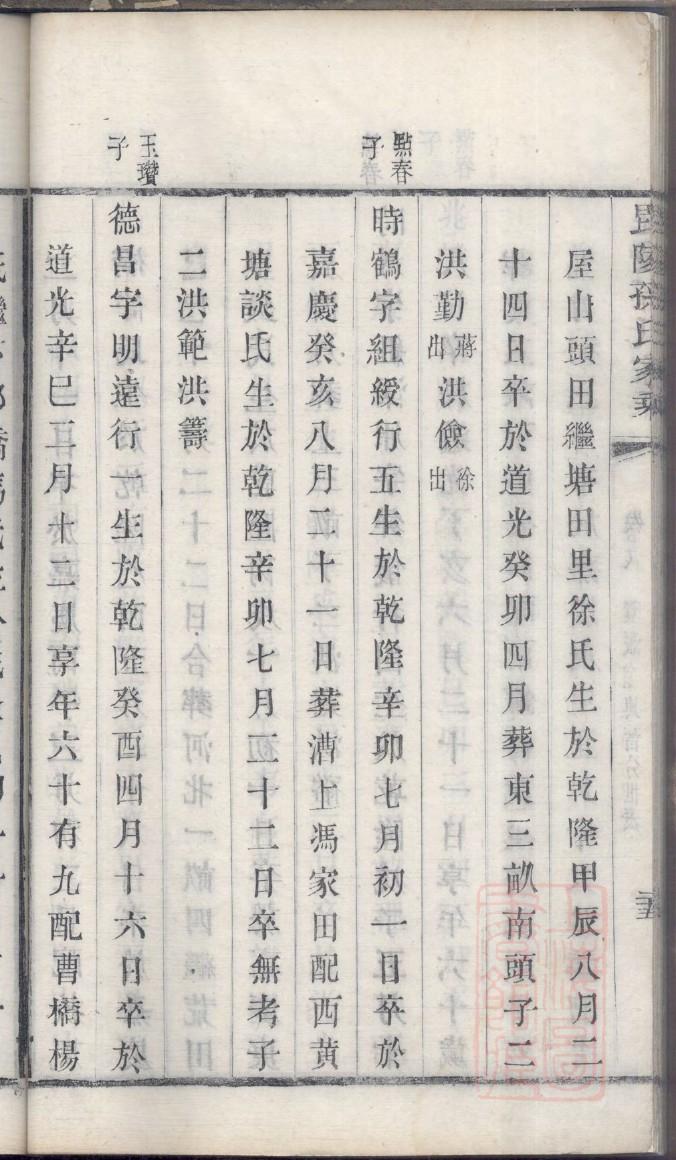 毘陵孫氏家乘
屋山頭田繼塘田里徐氏生於乾隆甲辰八月二
十四日卒於道光癸卯四月葬東三畝南頭子二
洪勤蔣出洪儉徐出
點春子
時鶴字組綬行五生於乾隆辛卯七月初一日卒於
嘉慶癸亥八月二十一日葬漕上馮家田配西黃
塘談氏生於乾隆辛卯七月二十二日卒無考子
二洪範洪籌
玉瓚子
德昌字明遠行一生於乾隆癸酉四月十六日卒於
道光辛巳三月十二日享年六十有九配曹橋楊